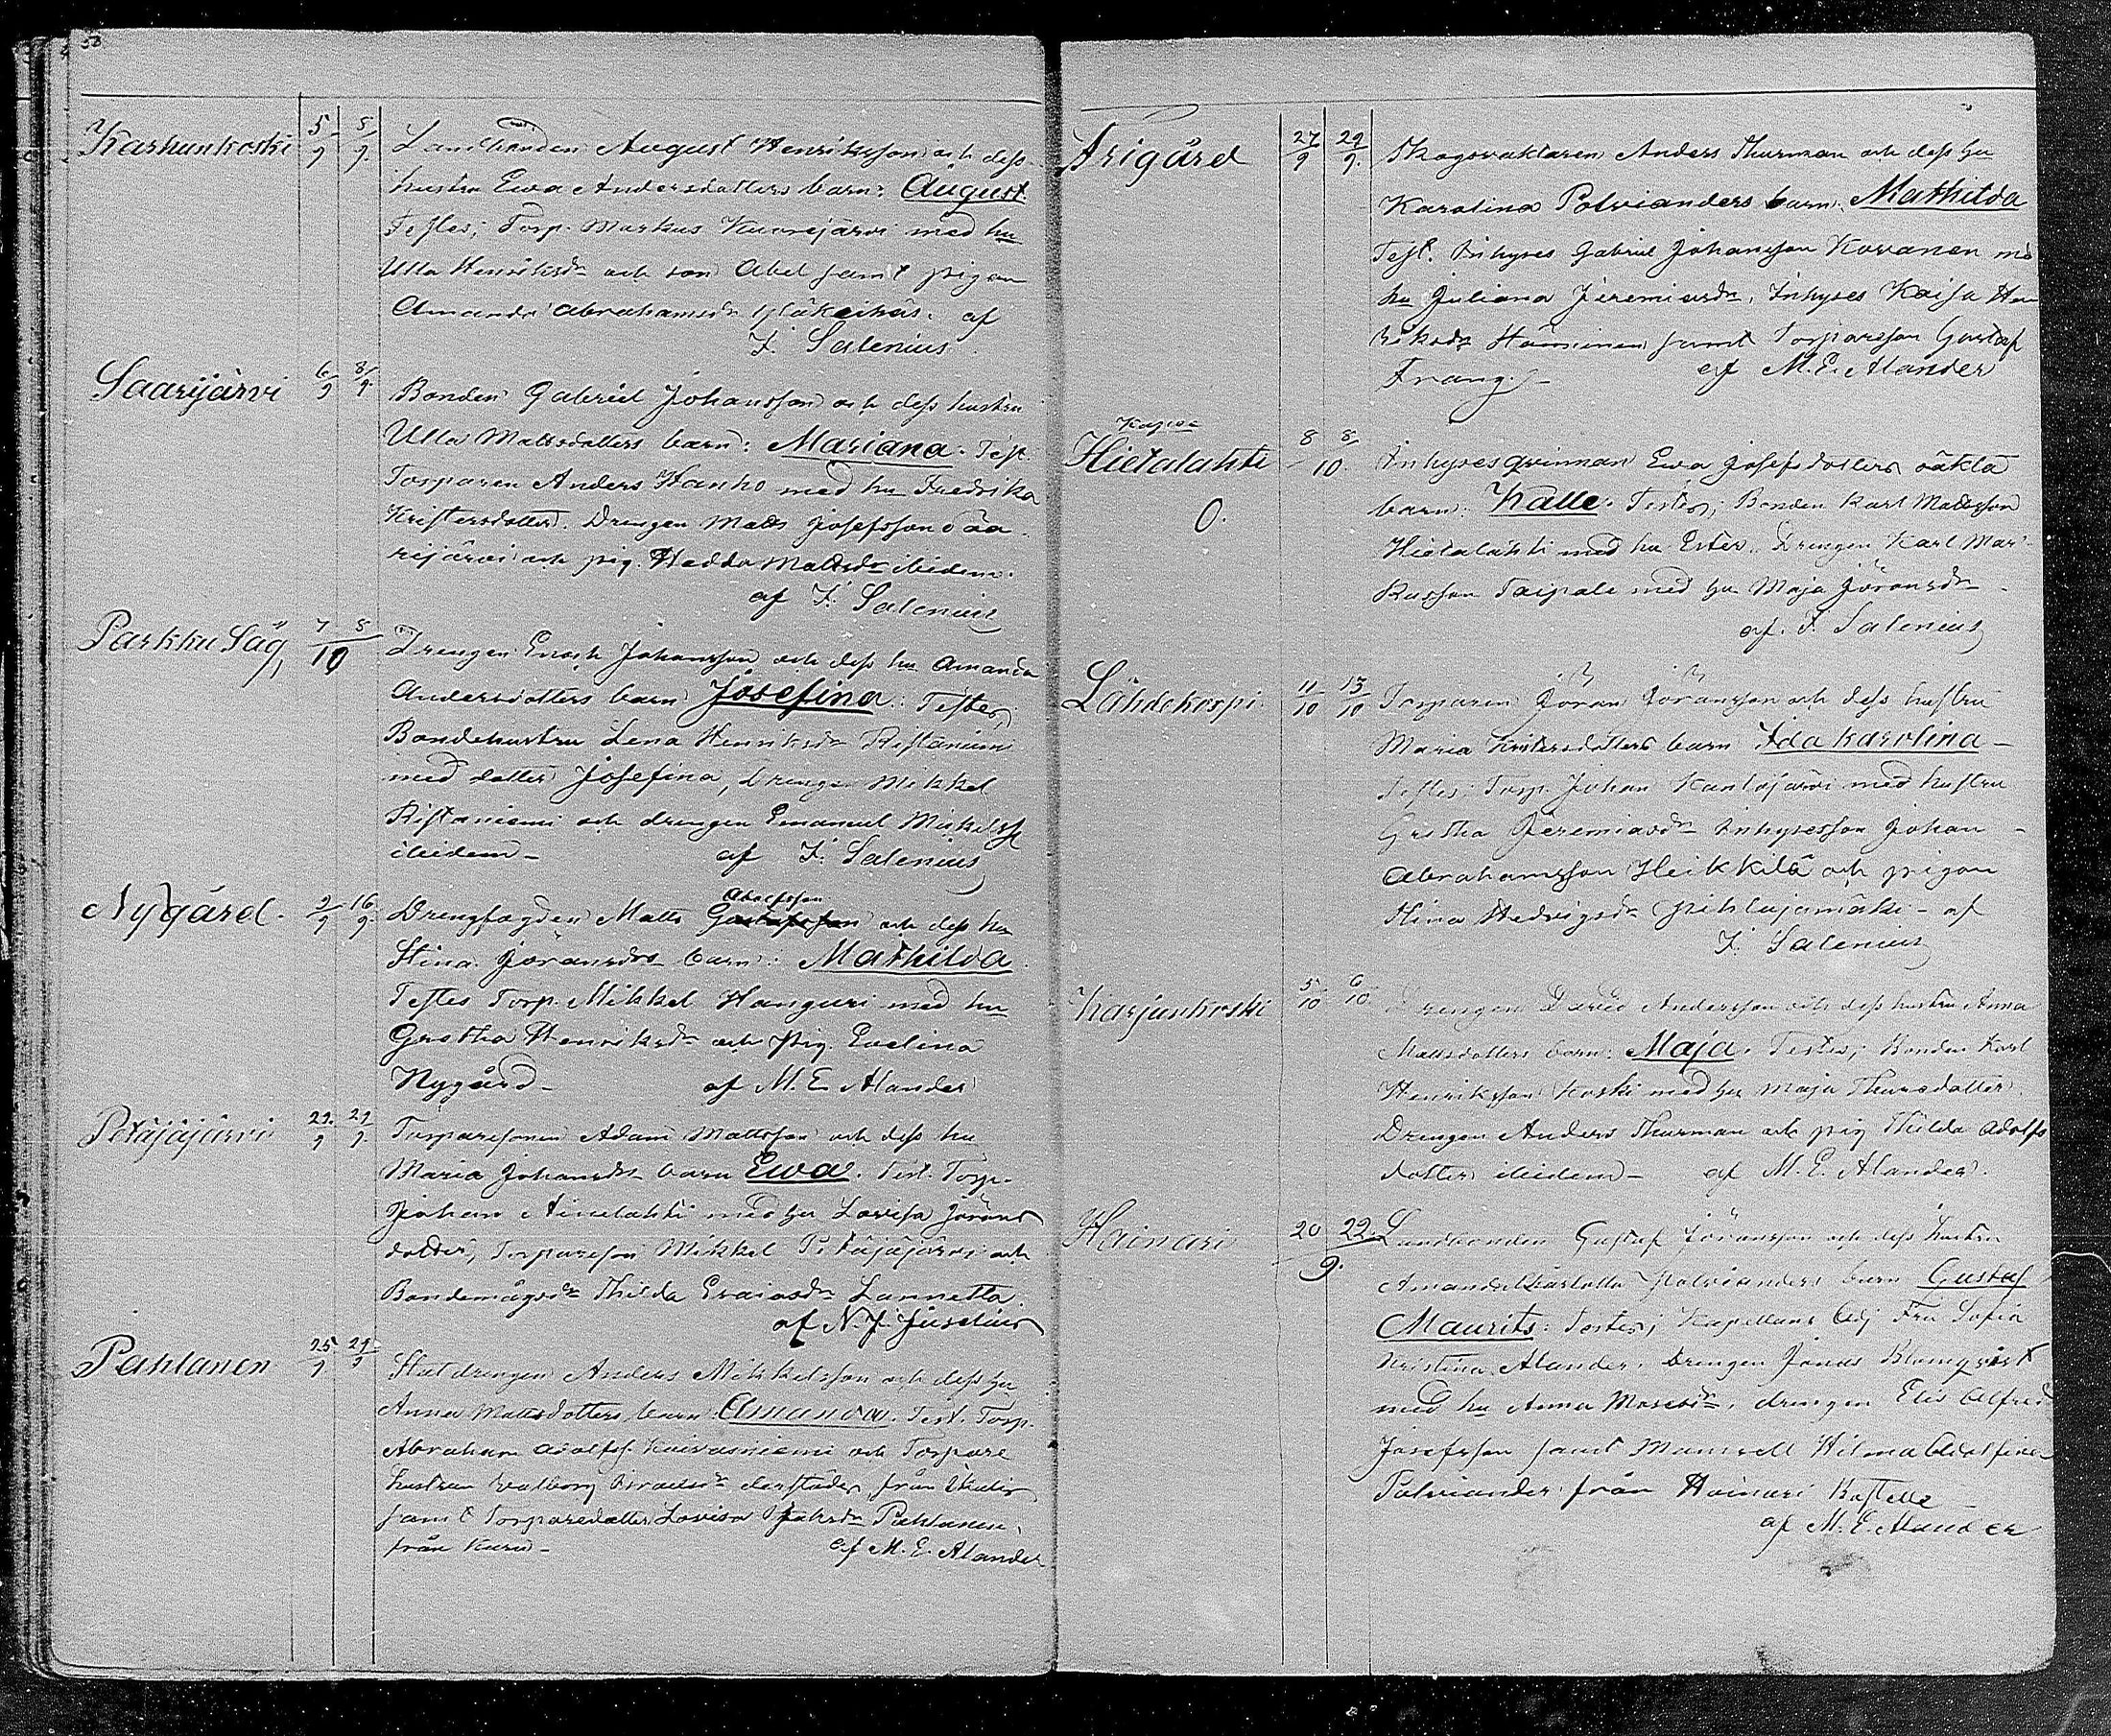 58
Karhunkoski 5/9 8/9. Landbonden August Henriksson och dess
hustru Ewa Andersdotters barn: August.
Testes; Torp. Markus Kuorejärvi med hu
Ulla Henriksdr och son Abel samt pigan
Amanda Abrahamsdr af
F. Salenius
Saarijärvi 6/9 8/9 Bonden Gabriel Johansson och dess hustru
Ulla Mattsdotters barn: Mariana. Test.
Torparen Anders Hanho med hu Fredrika
Kristersdotter. Drengen Matts Josefsson Saa
rijärvi och pig. Hedda Mattsdr ibidem.
af F. Salenius
Parkku Såg, 7 8/10 Drengen Enoch Johansson och dess hu Amanda
Andersdotters barn Josefina: Testes,
Bondehustru Lena Henriksdr Ristaniemi
med dotter Josefina, Drengen Mikkel
Ristaniemi och drengen Emanuel Mickelss
ibidem – af F. Salenius
Nygård. 9/9 16/9. Drengfogden Matts Gustafsson Adolfsson och dess hu
Stina Göransdrs barn: Mathilda.
Testes Torp. Mikkel Hanguri med hu
Gretha Henriksdr och Pig. Evelina
Nygård – af M. E. Alander
Petäjäjärvi 21/9 29/9. Torparesonen Adam Mattsson och dess hu
Maria Johansdrs barn Ewa. Test. Torp.
Johan med hu Lovisa Görans
dotter, Torpareson Mikkel Petäjäjärvi och
Bondemågsdr Thilda Esaiasdr Lannetta.
af N. J. Juselius
Pahlanen 25/9 29/9 Statdrengen Anders Mikkelsson och dess hu
Anna Mattsdotters barn Amanda. Test. Torp.
Abraham Adolfss. Koivasniemi och Torpare
hustrun Walborg derstädes, från
samt Torparedotter Lovisa Pahlanen,
från Kuru – af M. E. Alander
Arigård 27/9 29/9. Skogsvaktaren Anders Thurman och dess hu
Karolina Polvianders barn: Mathilda
Test. Inhyses Gabriel Johansson Kovanen med
hu Juliana Jeremiasdr, Inhyses Kaisa Hen
riksdr Hänninen samt Torparesson Gustaf
Frang. – af M. E. Alander
Kapee
Hietalahti 8 8/10. Inhysesqvinnan Ewa Josefsdotters oäkta
0. barn: Kalle. Testes, Bonden Karl Mattsson
Hietalahti med hu Ester. Drengen Karl Mar-
kusson Taipale med hu Maja Göransdr –
af. F. Salenius
Lähdekorpi 11/10 13/10 Torparen Göran Göransson och dess hustru
Maria Kristersdotters barn Ida Karolina –
Testes: Torp. Johan Kantojärvi med hustru
Gretha Jeremiasdr Inhysesson Johan –
Abrahamsson Heikkilä och pigan
Stina Hedvigsdr Pihlajamäki – af
F. Salenius
Karjunkoski 5/10 6/10. Drengen David Andersson och dess hustru Anna
Mattsdotters barn: Maja. Testes; Bonden Karl
Henriksson Koski med hu Maja Thuresdotter
Drengen Anders Thurman och pig Thilda Adolfs
dotter ibidem – af M. E. Alander.
Hainari 20 22/9. Landbonden Gustaf Göransson och dess hustru
Amanda Charlotta Polvianders barn Gustaf
Maurits: Testes; Kapellans Adj Fru Sofia
Kristina Alander. Drengen Jonas Blomqvist
med hu Anna Mosesdr, drengen Elis Alfred
Josefsson samt Mamsell Hilma Adolfina
Polviander från Hainari
af M. E. Alander